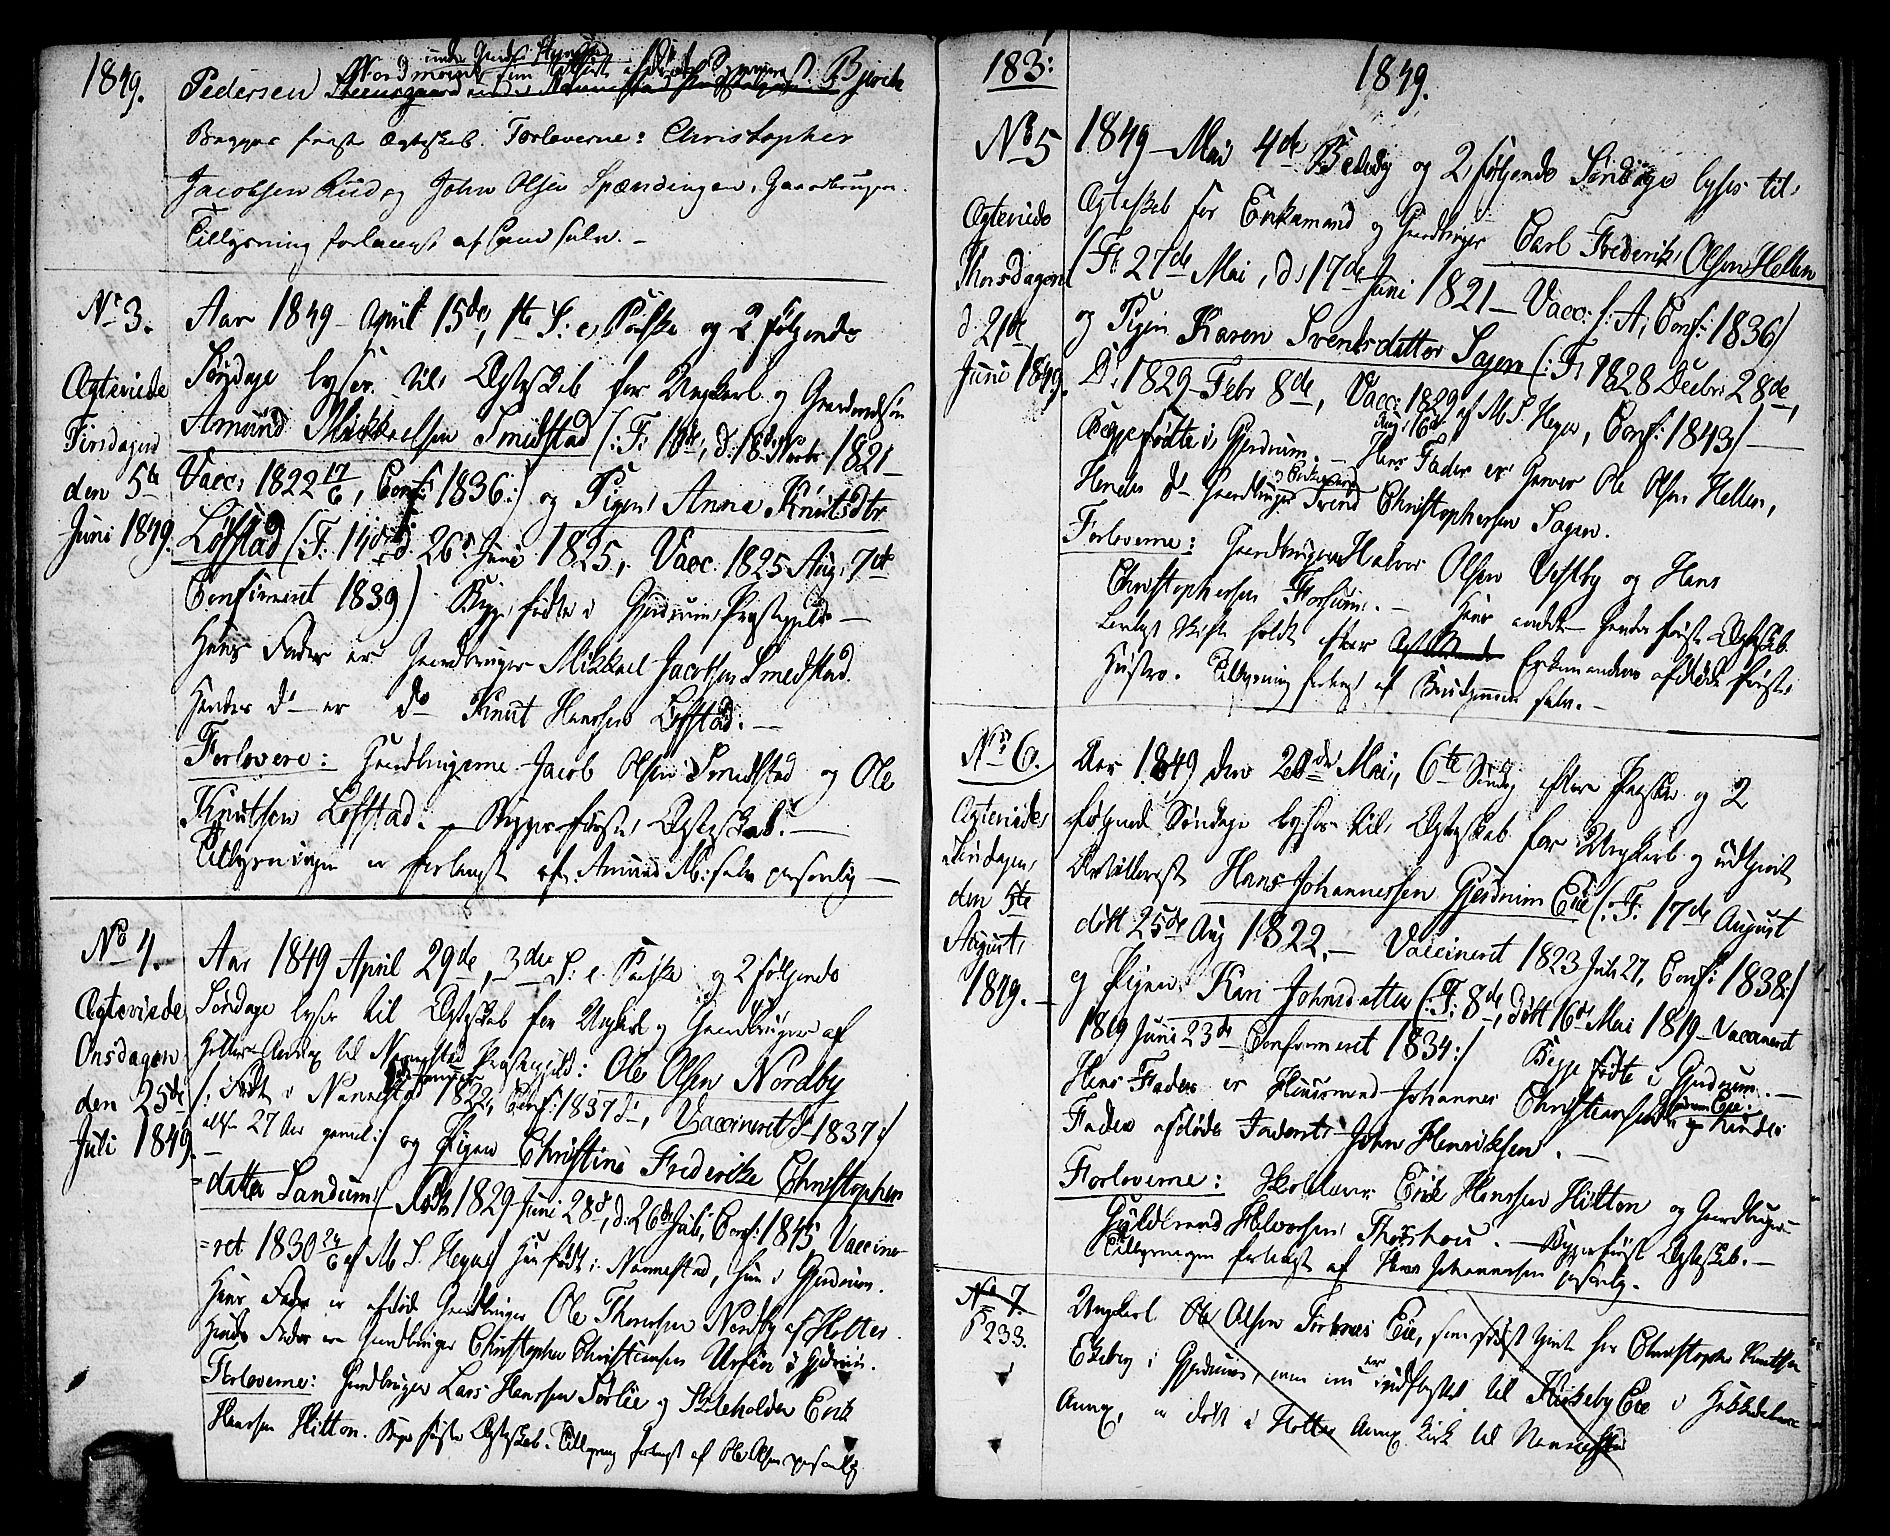 1849.
Pedersen
Begges første Ægteskab. Forloverne: Christopher
Jacobsen Ruud og John Olsen Spændingen, Gaardbruger.
Tillysning forlangt af ham selv. –
No 3.
Ægteviede
Tirsdagen
den 5te
Juni 1849.
Aar 1849 – April 15de, 1te S: e. Paaske og 2 følgende
Søndage lyses til Ægteskab for Ungkarl og Gaardmandssøn
Amund Mikkelsen Smedstad (: F: 10de, d: 18de Novbr 1821 –
Vacc: 1822 17/6, Conf: 1836:) og Pigen Anne Knutsdtr
Løfstad (: F: 14de, d. 26de Juni 1825, Vacc. 1825 Aug. 7de
Confirmeret 1839) Begge fødte i Gjerdrums Præstegjeld –
Hans Fader er Gaardbruger Mikkael Jacobsen Smedstad.
Hendes do – er do Knut Hanssen Løfstad. –
Forlovere: Gaardbrugerne Jacob Olsen Smedstad og Ole
Knutsen Løfstad. – Begges første Ægteskab. –
Tillysningen er forlangt af Amund M: selv personlig –
No 4.
Ægteviede
Onsdagen
den 25de
Juli 1849.
Aar 1849 April 29de, 3die S: e. Paaske og 2 følgende
Søndage lyses til Ægteskab for Ungkarl og Gaardbruger af
Holters Annex til Nannestad Præstegjeld: Ole Olsen Nordby
(: Født i Nannestad 1822, Conf: 1837 , Vaccineret 1837:)
altsaa 27 Aar gammel:) og Pigen Christine Frederikke Christophers
datter Sandum (: Født 1829 Juni 28de, d: 26de Juli, Conf: 1845 Vaccine-
=ret 1830 24/6 af M. S. Heyer) Han født i Nannestad, hun i Gjerdrum.
Hans Fader er afdøde Gaardbruger Ole Thoresen Nordby af Holter.
Hendes Fader er Gaardbruger Christopher Christiansen Ursin i Gjerdrum.
Forloverne: Gaardbruger Lars Hanssen Sørlie og Skoleholder Erik
Hanssen Hilton. Begges første Ægteskab. Tillysning forlangt af Ole Olsen personlig
183:
1849.
No 5
Ægteviede
Thorsdagen
d. 21de
Juni 1849.
1849 – Mai 4de Bededag og 2 følgende Søndage lyses til
Ægteskab for Enkemand og Gaardbruger Carl Frederik Olsen Hellen
(F: 27de Mai, d: 17de Juni 1821 – Vacc: s: A; Conf: 1836)
og Pigen Karen Svendsdatter Sagen (: F: 1828 Decbr 28de,
D: 1829 – Febr 8de, Vacc: 1829 Aug: 16de af M. S. Heyer, Conf: 1843) –
Begge fødte i Gjerdrum. – Hans Fader er Garver Ole Olsen Hellen,
Hendes do – Gaardbruger og Enkemand Svend Christophersen Sagen.
Forloverne: Gaardbrugerne Halvor Olsen Vestby og Hans
Christophersen Forsum. – Hans andet – hendes første Ægteskab.
Lovligt Skifte holdt efter Enkemandens afdøde første
Hustro. Tillysning forlangt af Brudgommen selv. –
No 6.
Ægteviede
Søndagen
den 5te
August
1849. –
Aar 1849 den 20de Mai, 6te Søndag efter Paaske og 2
følgende Søndage lyses til Ægteskab for Ungkarl og udtjent
Artillerist Hans Johannessen Gjerdrum Eie (: F: 17de August
døbt 25de Aug 1822. – Vaccineret 1823 Juli 27, Conf: 1838:)
og Pigen Kari Johnsdatter (: F: 8de, døbt 16de Mai 1819 – Vaccineret
1819 Juni 23de Confirmeret 1834:) Begge fødte i Gjerdrum. –
Hans Fader er Huusmand Johannes Christiansen og hendes
Fader afdøde Johan Henriksen. –
Forloverne: Skolelærer Erik Hanssen Hilton og Gaardbruger
Guldbrand Halvorsen Thorshou. – Begges første Ægteskab. –
Tillysningen forlangt af Hans Johannessen personlig.
No 7.
P 233.
Ungkarl Ole Olsen Eie, som før tjent hos Christopher Knutsen
Ekeberg i Gjerdrum, men nu er indflyttet til Kirkeby Eie i
Annex, er døbt i Holter Annex Kirke til Nannestad